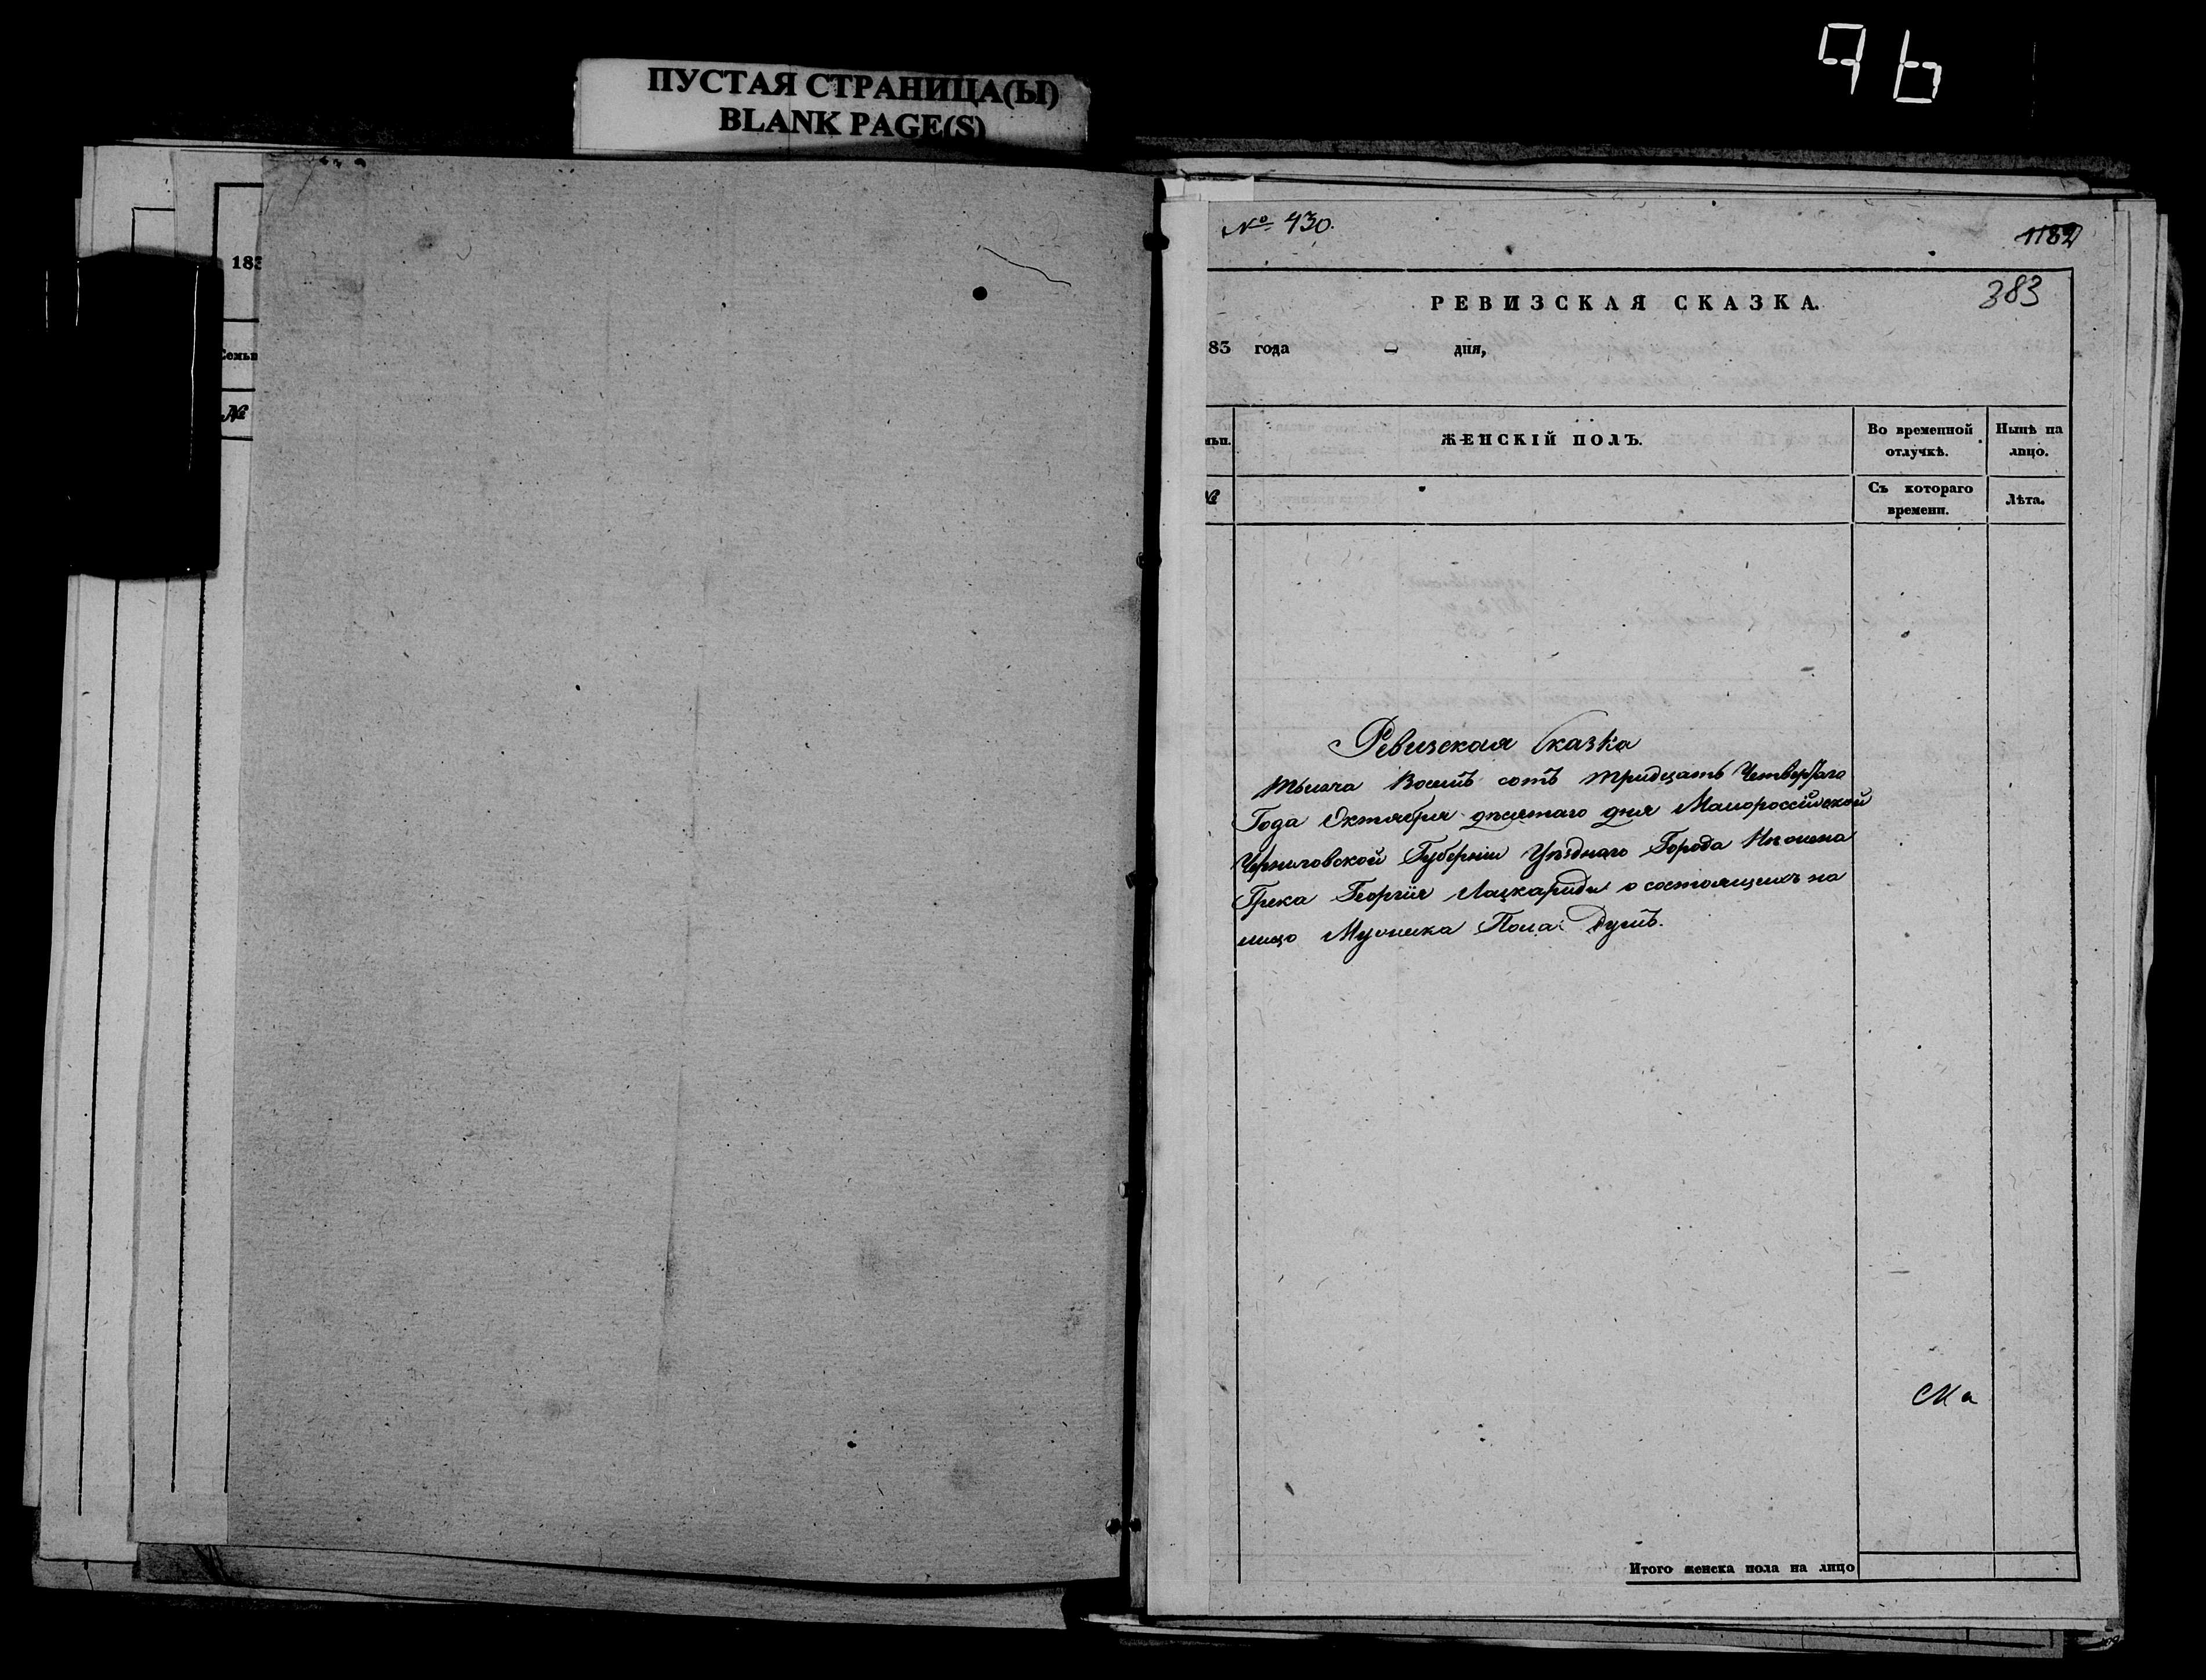 96
ПУСТАЯ СТРАНИЦА(Ы)
BLANK PAGE(S)
183
Семьи
№
№ 430.
1182
383
РЕВИЗСКАЯ СКАЗКА.
83 года дня,
ьи.
ЖЕНСКІЙ ПОЛЪ.
Во временной отлучкѣ.
Нынѣ на лицо.
№
Съ котораго времени.
Лѣта.
Ревизская Сказка
тысяча восемь сотъ тридцать Четвертаго
Года Октября десятаго дня Малороссійской
Черниговской Губерніи Уѣзднаго Города Нѣжина
Грека Георгія о состоящихъ на
лицо Мужеска Пола Душъ.
Итого женска пола на лицо